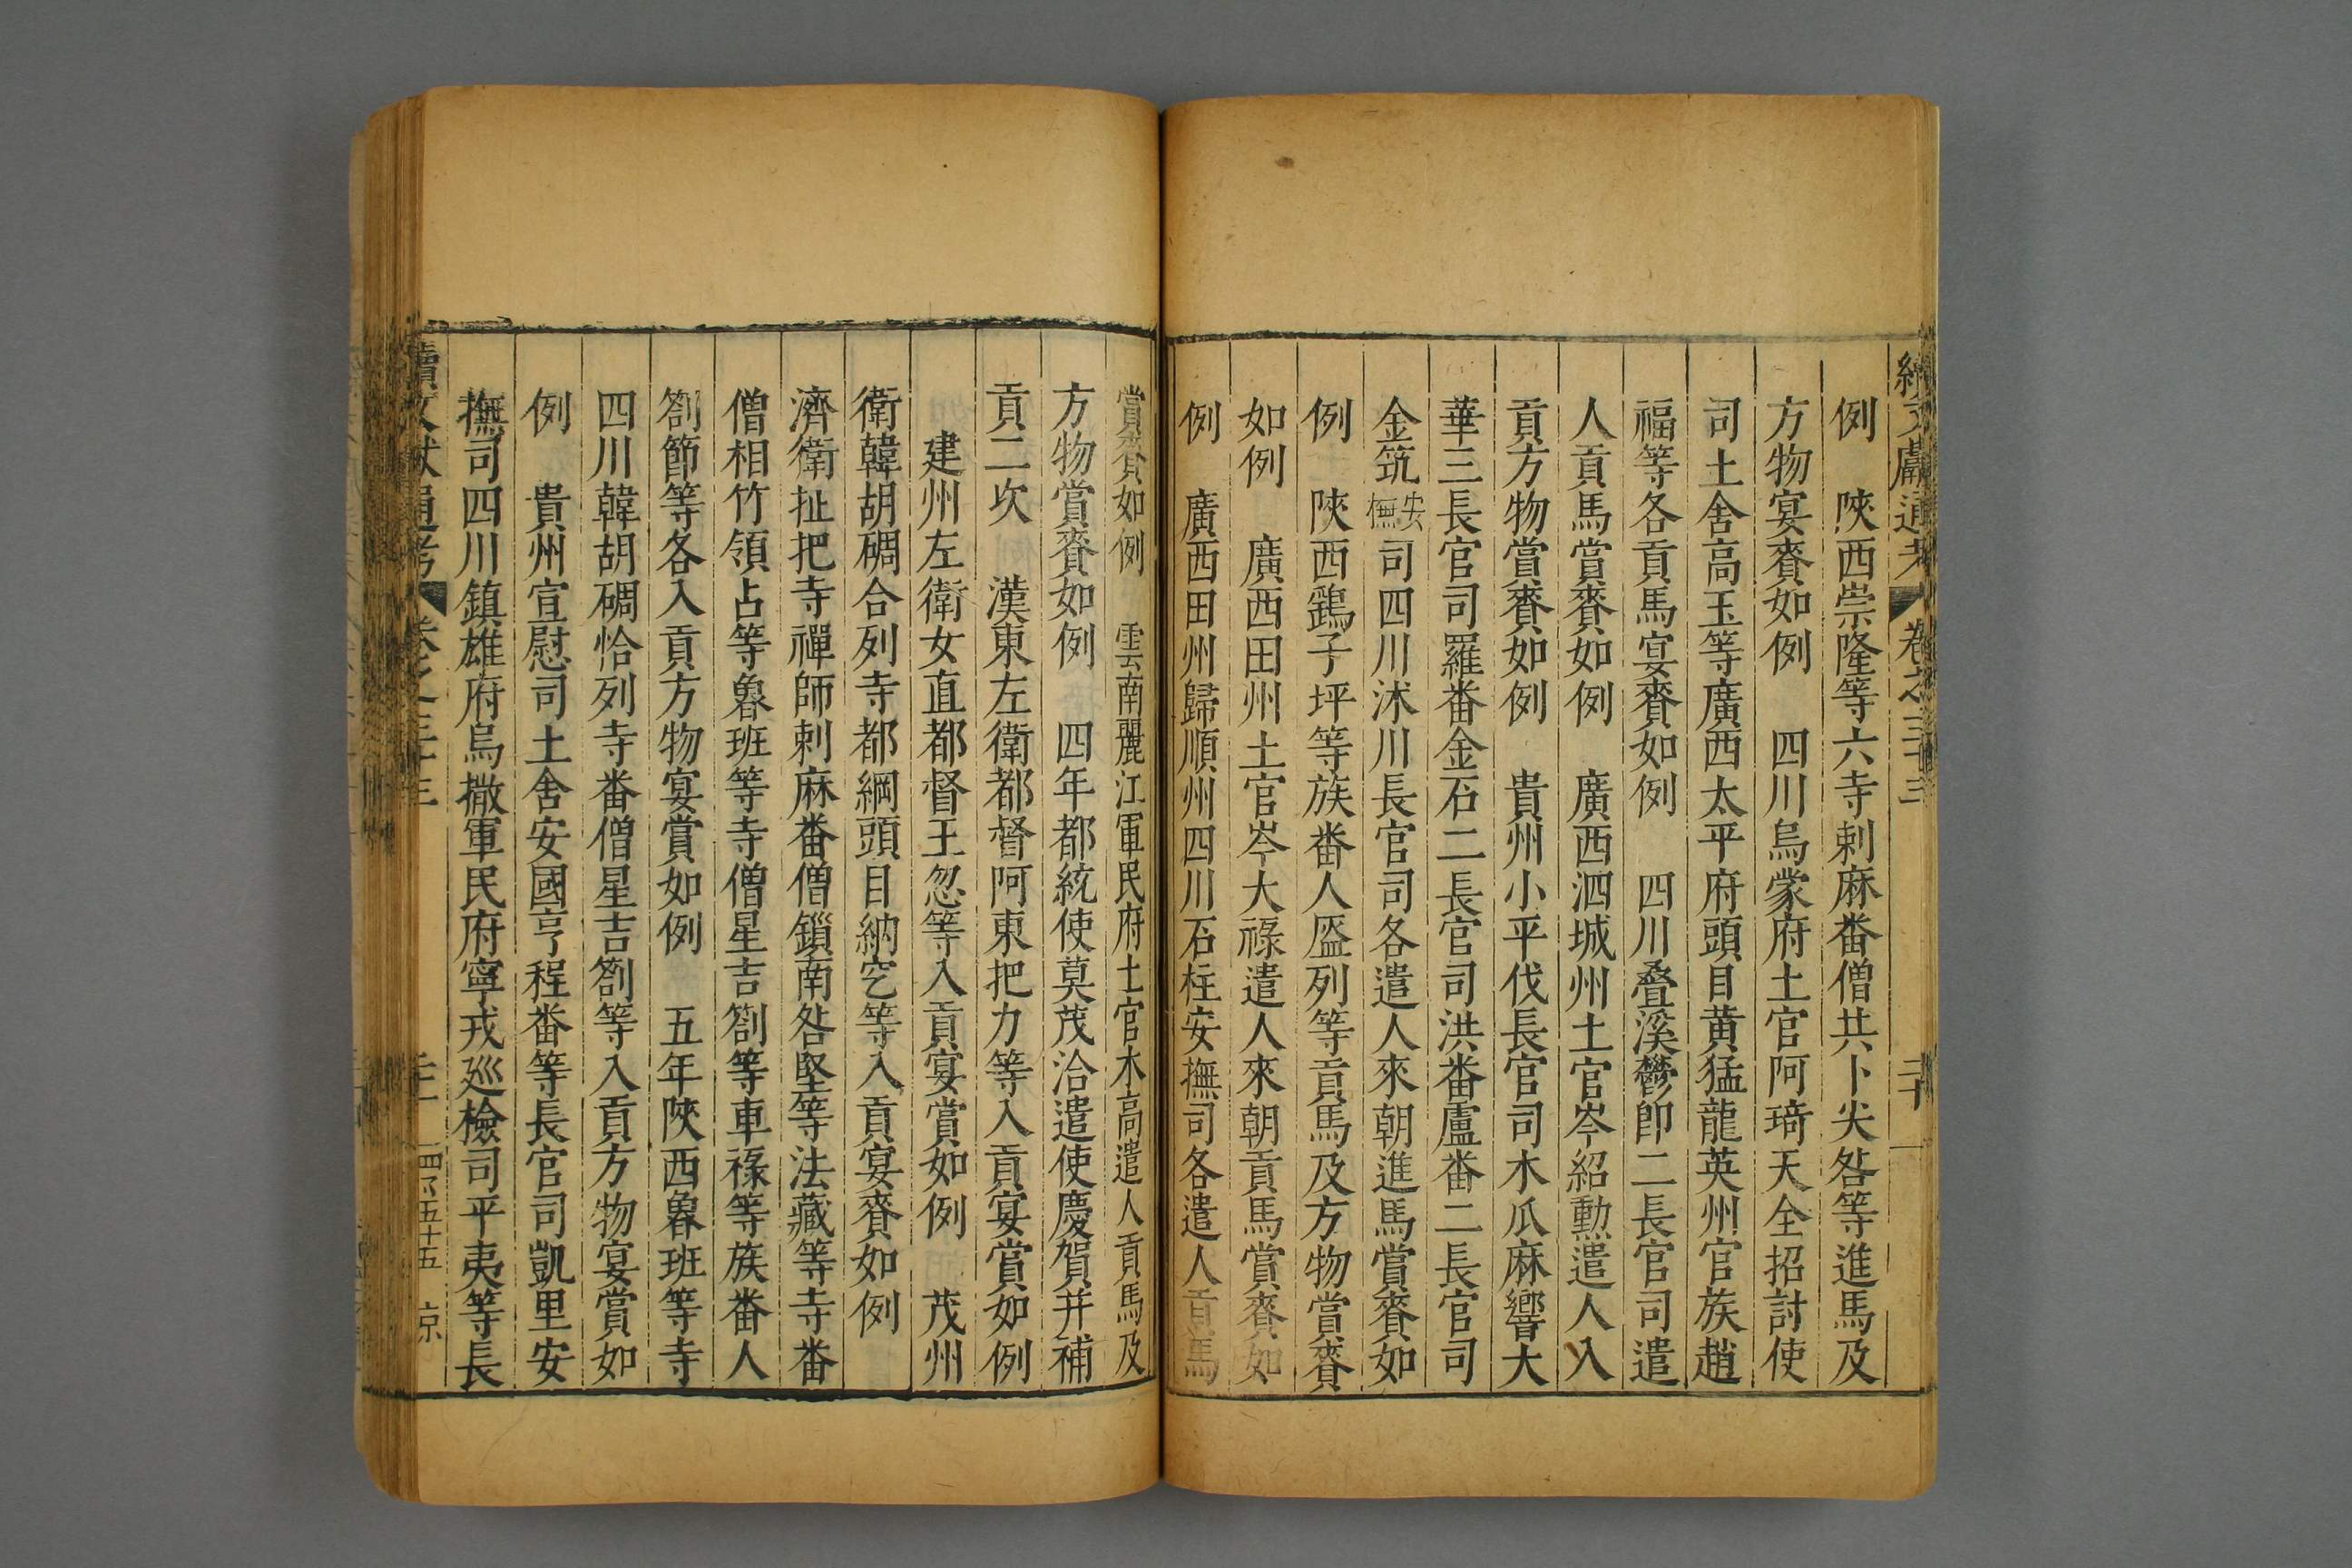 續文獻通考 卷之三十三 二十
例 陝西崇隆等六寺剌麻番僧共卜尖咎等進馬及
方物宴賚如例 四川烏蒙府土官阿琦天全招討使
司土舍高玉等廣西太平府頭目黄猛龍英州官族趙
福等各貢馬宴賚如例 四川叠溪鬱即二長官司遣
人貢馬賞賚如例 廣西泗城州土官岑紹勲遣人入
貢方物賞賚如例 貴州小平伐長官司木瓜麻響大
華三長官司羅番金石二長官司洪番盧番二長官司
金筑安撫司四川沭川長官司各遣人來朝進馬賞賚如
例 陝西鷂子坪等族番人㔶列等貢馬及方物賞賚
如例 廣西田州土官岑大祿遣人來朝貢馬賞賚如
例 廣西田州歸順州四川石柱安撫司各遣人貢馬
賞賚如例 雲南麗江軍民府土官木高遣人貢馬及
方物賞賚如例 四年都統使莫茂洽遣使慶賀并補
貢二次 漢東左衛都督阿東把力等入貢宴賞如例
建州左衛女直都督王忽等入貢宴賞如例 茂州
衛韓胡碉合列寺都綱頭目納空等入貢宴賚如例
濟衛扯把寺禪師剌麻番僧鎻南咎堅等法藏等寺番
僧相竹領占等魯班等寺僧星吉劄等車祿等族番人
劄節等各入貢方物宴賞如例 五年陝西魯班等寺
四川韓胡碉恰列寺番僧星吉劄等入貢方物宴賞如
例 貴州宣慰司土舍安國亨程番等長官司凱里安
撫司四川鎮雄府烏撒軍民府寧戎廵檢司平夷等長
續文獻通考 卷之三十三 二十一 四百五十五 京